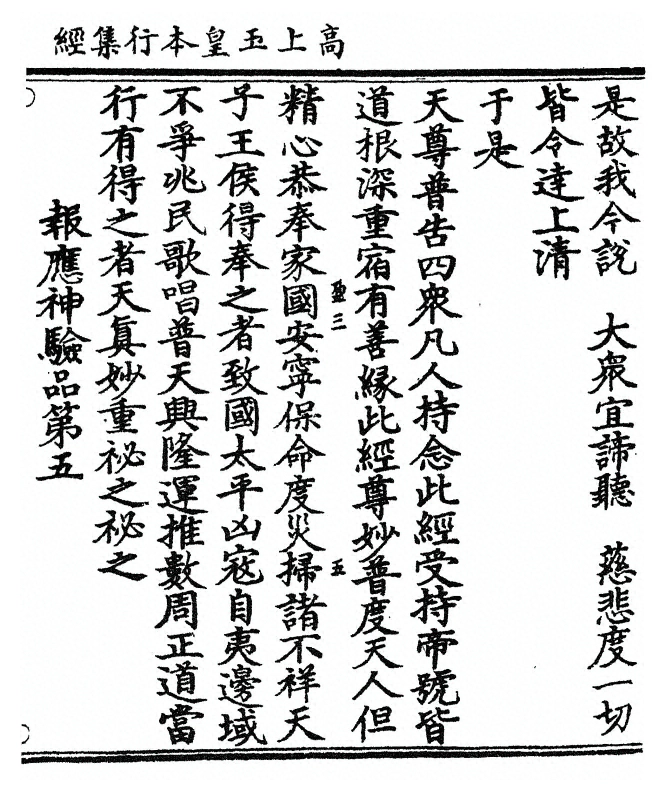 高上玉皇本行集經
是故我今說　大衆宜諦聽　慈悲度一切
皆令達上清
于是
天尊普告四衆凡人持念此經受持帝號皆
道根深重宿有善緣此經尊妙普度天人但
盈三
五
精心恭奉家國安寧保命度災掃諸不祥天
子王侯得奉之者致國太平凶寇自夷邊域
不爭兆民歌唱普天興隆運推數周正道當
行有得之者天真妙重祕之祕之
報應神驗品第五